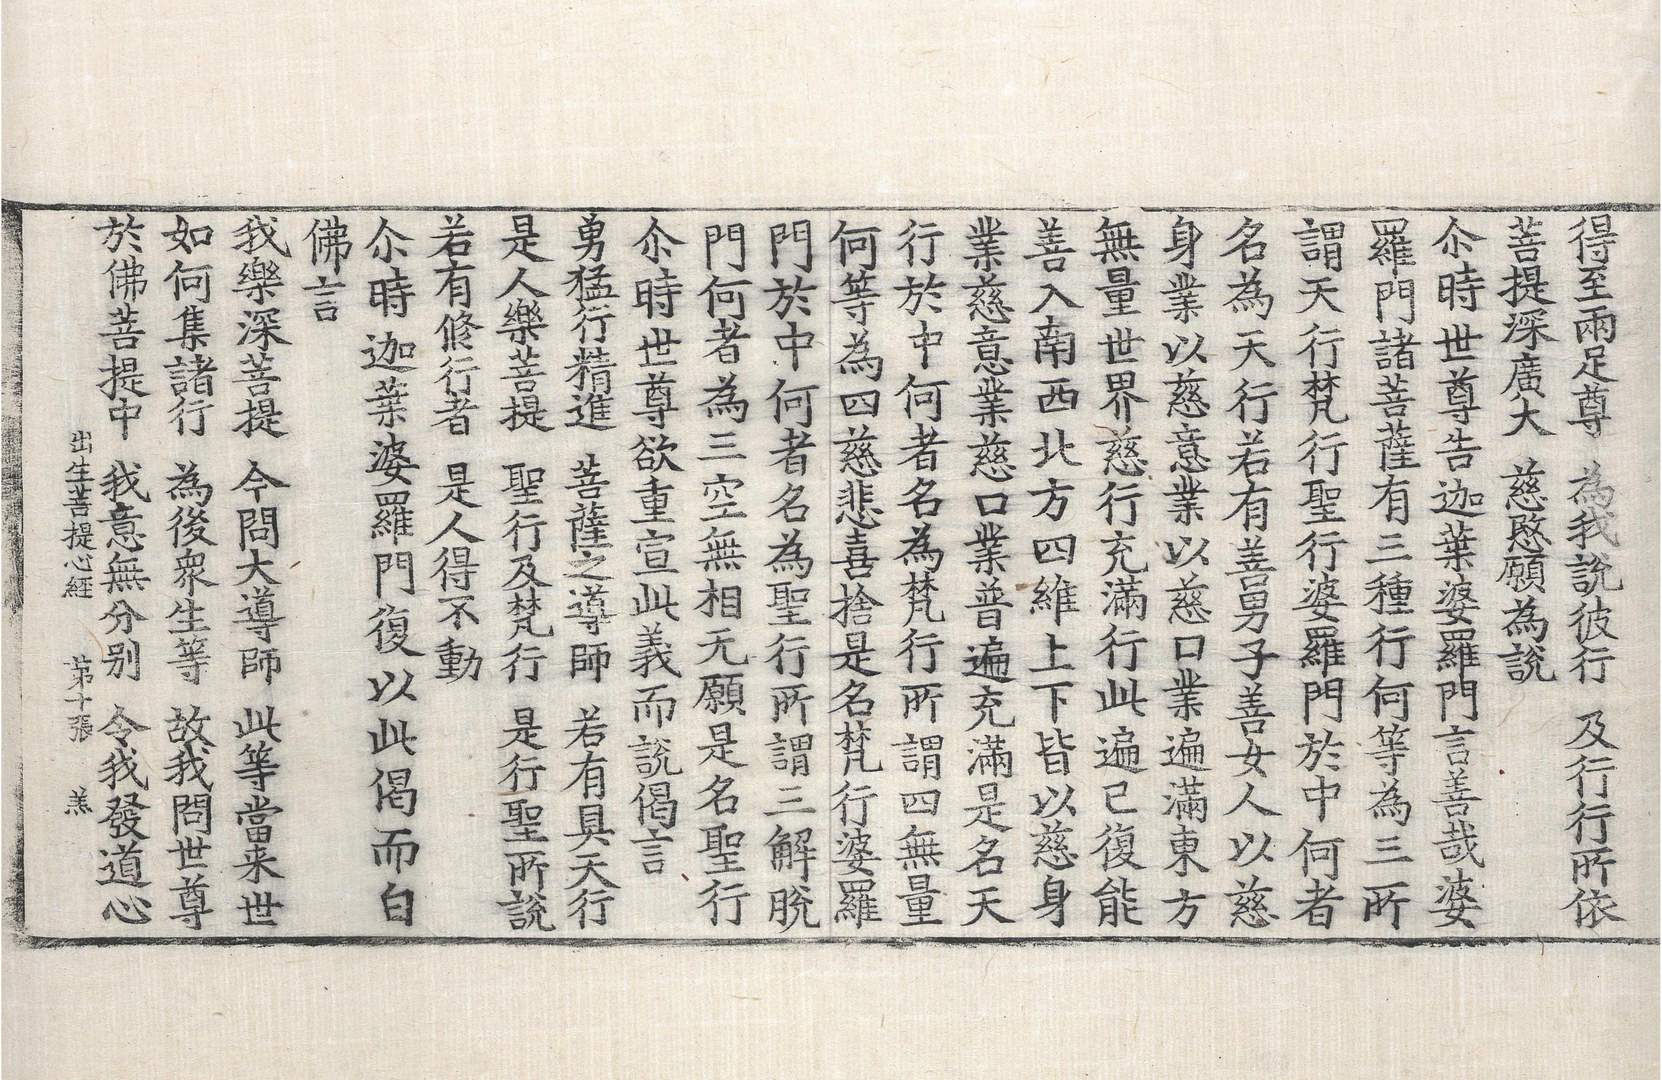 得至兩足尊 為我說彼行 及行行所依
菩提深廣大 慈愍願為說
尒時世尊告迦葉婆羅門言善哉婆
羅門諸菩薩有三種行何等為三所
謂天行梵行聖行婆羅門於中何者
名為天行若有善男子善女人以慈
身業以慈意業以慈口業遍滿東方
無量世界慈行充滿行此遍已復能
善入南西北方四維上下皆以慈身
業慈意業慈口業普遍充滿是名天
行於中何者名為梵行所謂四無量
何等為四慈悲喜捨是名梵行婆羅
門於中何者名為聖行所謂三解脫
門何者為三空無相无願是名聖行
尒時世尊欲重宣此義而說偈言
勇猛行精進 菩薩之導師 若有具天行
是人樂菩提 聖行及梵行 是行聖所說
若有修行者 是人得不動
尒時迦葉婆羅門復以此偈而白
佛言
我樂深菩提 今問大導師 此等當来世
如何集諸行 為後衆生等 故我問世尊
於佛菩提中 我意無分別 令我發道心
出生菩提心經 第十張 羔